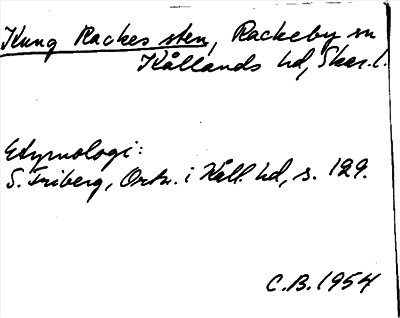 Kung Rackes sten, Rackeby sn
Kållands hd, Skar.l.
Etymologi:
S. Friberg, Ortn. i Kåll. hd, s. 129.
C.B. 1954